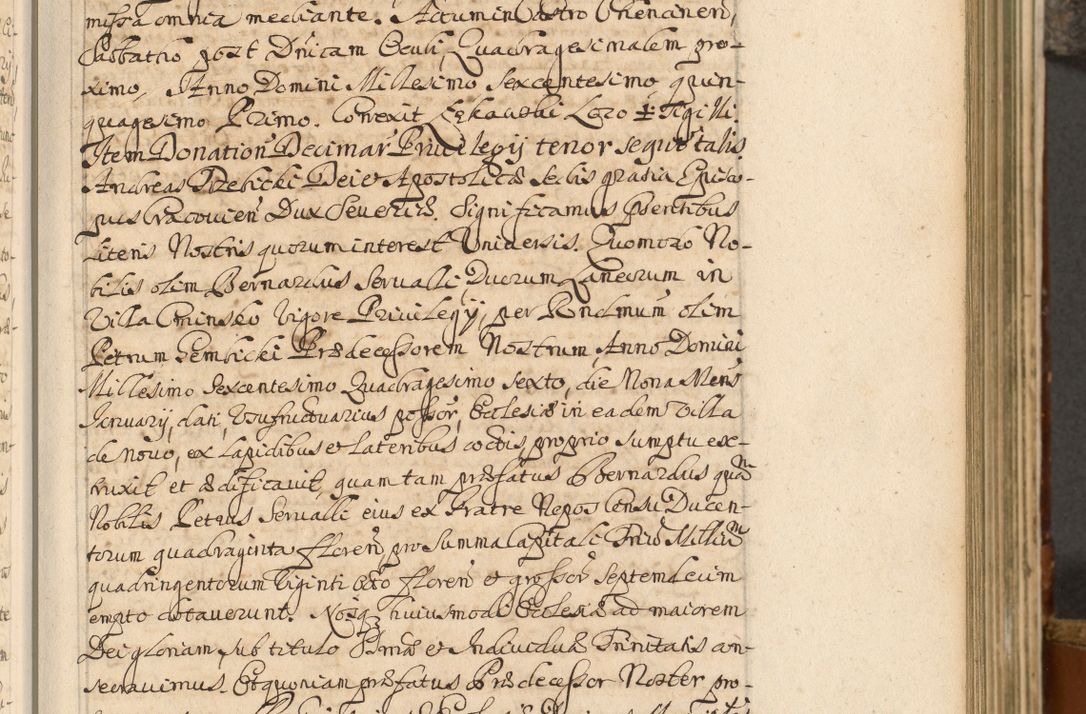 missa omnia mediante. Actum in Castro Chencinen,
Sabbatho post Dnicam Oculi, Quadragesimalem pro-
ximo, Anno Domini Millesimo Sexcentesimo quin-
quagesimo Primo. Conexit Łękawski Loco Sigilli.
Item Donation Decimar Privilegij tenor sequit talis.
Andreas Trzebicki Dei et Apostolicæ Sedis gratia Episco-
pus Cracovien Dux Severiæ. Significamus Præsentibus
Literis Nostris quorum interest Universis. Quomodo No-
bilis olim Bernardus Servalli, Duorum Laneorum in
Villa Cminsko Vigore Privilegij, per Rndmum olim
Petrum Gembicki Prædecessorem Nostrum Anno Domini
Millesimo Sexcentesimo Quadragesimo sexto, die Nona Mens
Januarij, dati, Usufructuarius possor, Ecclesiã in eadem Villa
de novo, ex Lapidibus et Lateribus coctis, proprio sumptu ex-
truxit et ædificavit, quam tam præfatus Bernardus quam
Nobilis Petrus Servalli eius ex Fratre Nepos Censu Ducen-
torum quadraginta Floren, pro Summa Capitali Triũ Millium
quadringentorum Viginti Octo Floren et grossor Septemdecim
empto dotaverunt. Nosq huiusmodi Ecclesiã ad maiorem
Dei gloriam, sub titulo Ssmæ et Individuæ Trinitatis con-
secravimus. Et quoniam præfatus Prædecessor Noster pro-